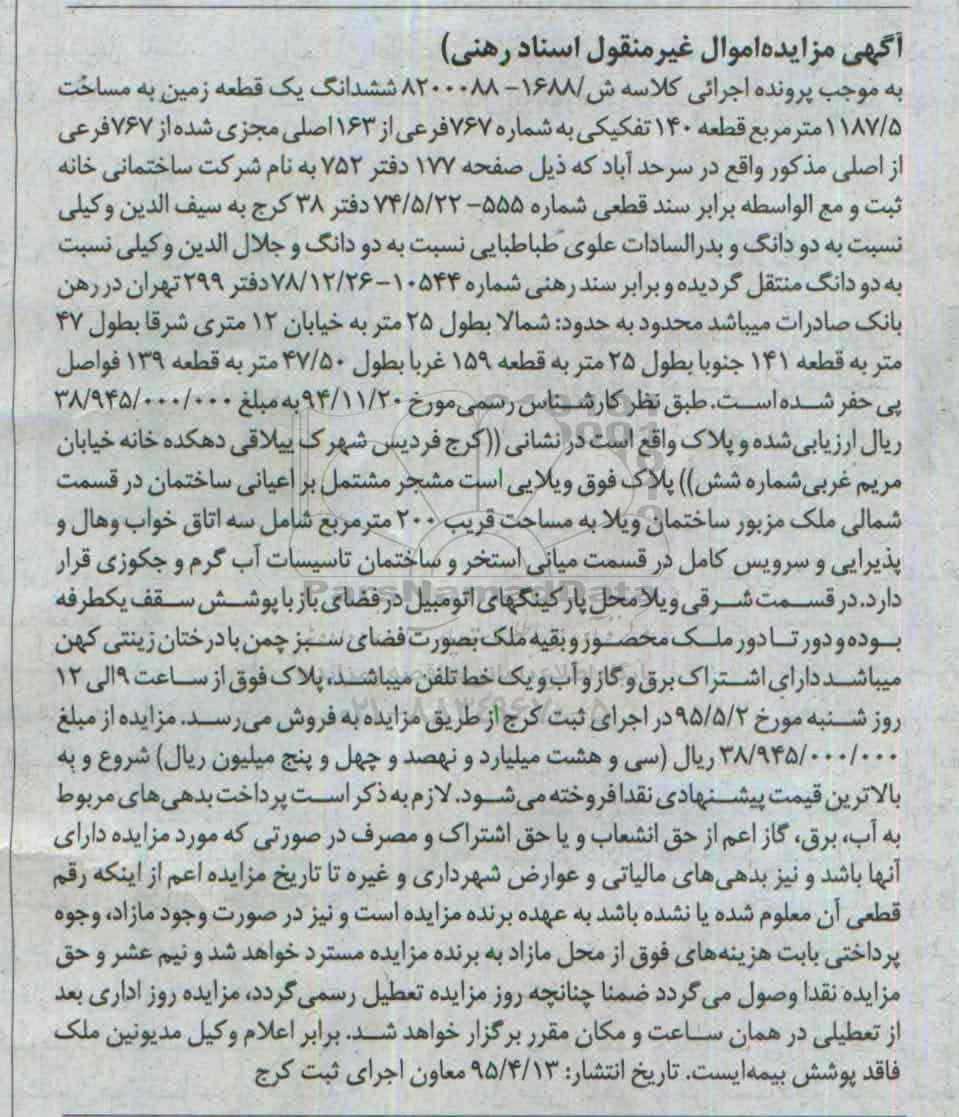 آگهی مزایده‌اموال غیرمنقول اسناد رهنی)
به موجب پرونده اجرائی کلاسه ش/۱۶۸۸-۸۲۰۰۰۸۸ ششدانگ یک قطعه زمین به مساحت
۱۱۸۷/۵ مترمربع قطعه ۱۴۰ تفکیکی به شماره ۷۶۷فرعی از ۱۶۳اصلی مجزی شده از ۷۶۷فرعی
از اصلی مذکور واقع در سرحد آباد که ذیل صفحه ۱۷۷ دفتر ۷۵۲ به نام شرکت ساختمانی خانه
ثبت و مع الواسطه برابر سند قطعی شماره ۵۵۵-۷۴/۵/۲۲ دفتر ۳۸ کرج به سیف الدین وکیلی
نسبت به دو دانگ و بدرالسادات علوی طباطبایی نسبت به دو دانگ و جلال الدین وکیلی نسبت
به دو دانگ منتقل گردیده و برابر سند رهنی شماره ۱۰۵۴۴-۷۸/۱۲/۲۶دفتر ۲۹۹ تهران در رهن
بانک صادرات میباشد محدود به حدود: شمالا بطول ۲۵ متر به خیابان ۱۲ متری شرقا بطول ۴۷
متر به قطعه ۱۴۱ جنوبا بطول ۲۵ متر به قطعه ۱۵۹ غربا بطول ۴۷/۵۰ متر به قطعه ۱۳۹ فواصل
پی حفر شده است. طبق نظر کارشناس رسمی مورخ ۹۴/۱۱/۲۰به مبلغ ۳۸/۹۴۵/۰۰۰/۰۰۰
ریال ارزیابی شده و پلاک واقع است در نشانی ((کرج فردیس شهرک ییلاقی دهکده خانه خیابان
مریم غربی شماره شش)) پلاک فوق ویلایی است مشجر مشتمل بر اعیانی ساختمان در قسمت
شمالی ملک مزبور ساختمان ویلا به مساحت قریب ۲۰۰ مترمربع شامل سه اتاق خواب وهال و
پذیرایی و سرویس کامل در قسمت میانی استخر و ساختمان تاسیسات آب گرم و جکوزی قرار
دارد. در قسمت شرقی ویلا محل پارکینگهای اتومبیل در فضای باز با پوشش سقف یکطرفه
بوده و دور تا دور ملک محصور و بقیه ملک بصورت فضای سبز چمن با درختان زینتی کهن
میباشد دارای اشتراک برق و گاز و آب و یک خط تلفن میباشد، پلاک فوق از ساعت ۹الی ۱۲
روز شنبه مورخ ۹۵/۵/۲ در اجرای ثبت کرج از طریق مزایده به فروش می‌رسد. مزایده از مبلغ
۳۸/۹۴۵/۰۰۰/۰۰۰ ریال (سی و هشت میلیارد و نهصد و چهل و پنج میلیون ریال) شروع و به
بالاترین قیمت پیشنهادی نقدا فروخته می‌شود. لازم به ذکر است پرداخت بدهی های مربوط
به آب، برق، گاز اعم از حق انشعاب و یا حق اشتراک و مصرف در صورتی که مورد مزایده دارای
آنها باشد و نیز بدهی‌های مالیاتی و عوارض شهرداری و غیره تا تاریخ مزایده اعم از اینکه رقم
قطعی آن معلوم شده یا نشده باشد به عهده برنده مزایده است و نیز در صورت وجود مازاد، وجوه
پرداختی بابت هزینه‌های فوق از محل مازاد به برنده مزایده مسترد خواهد شد و نیم عشر و حق
مزایده نقدا وصول می گردد ضمنا چنانچه روز مزایده تعطیل رسمی گردد، مزایده روز اداری بعد
از تعطیلی در همان ساعت و مکان مقرر برگزار خواهد شد. برابر اعلام وکیل مدیونین ملک
فاقد پوشش بیمه‌ایست. تاریخ انتشار: ۹۵/۴/۱۳ معاون اجرای ثبت کرج
ParsNamadData